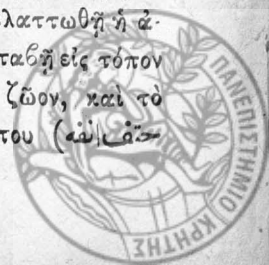 λαττωθῇ ἡ ἀ-
ταβῇ εἰς τόπον
ζῶον, καὶ τὸ
του (
ΠΑΝΕΠΙΣΤΗΜΙΟ ΚΡΗΤΗΣ